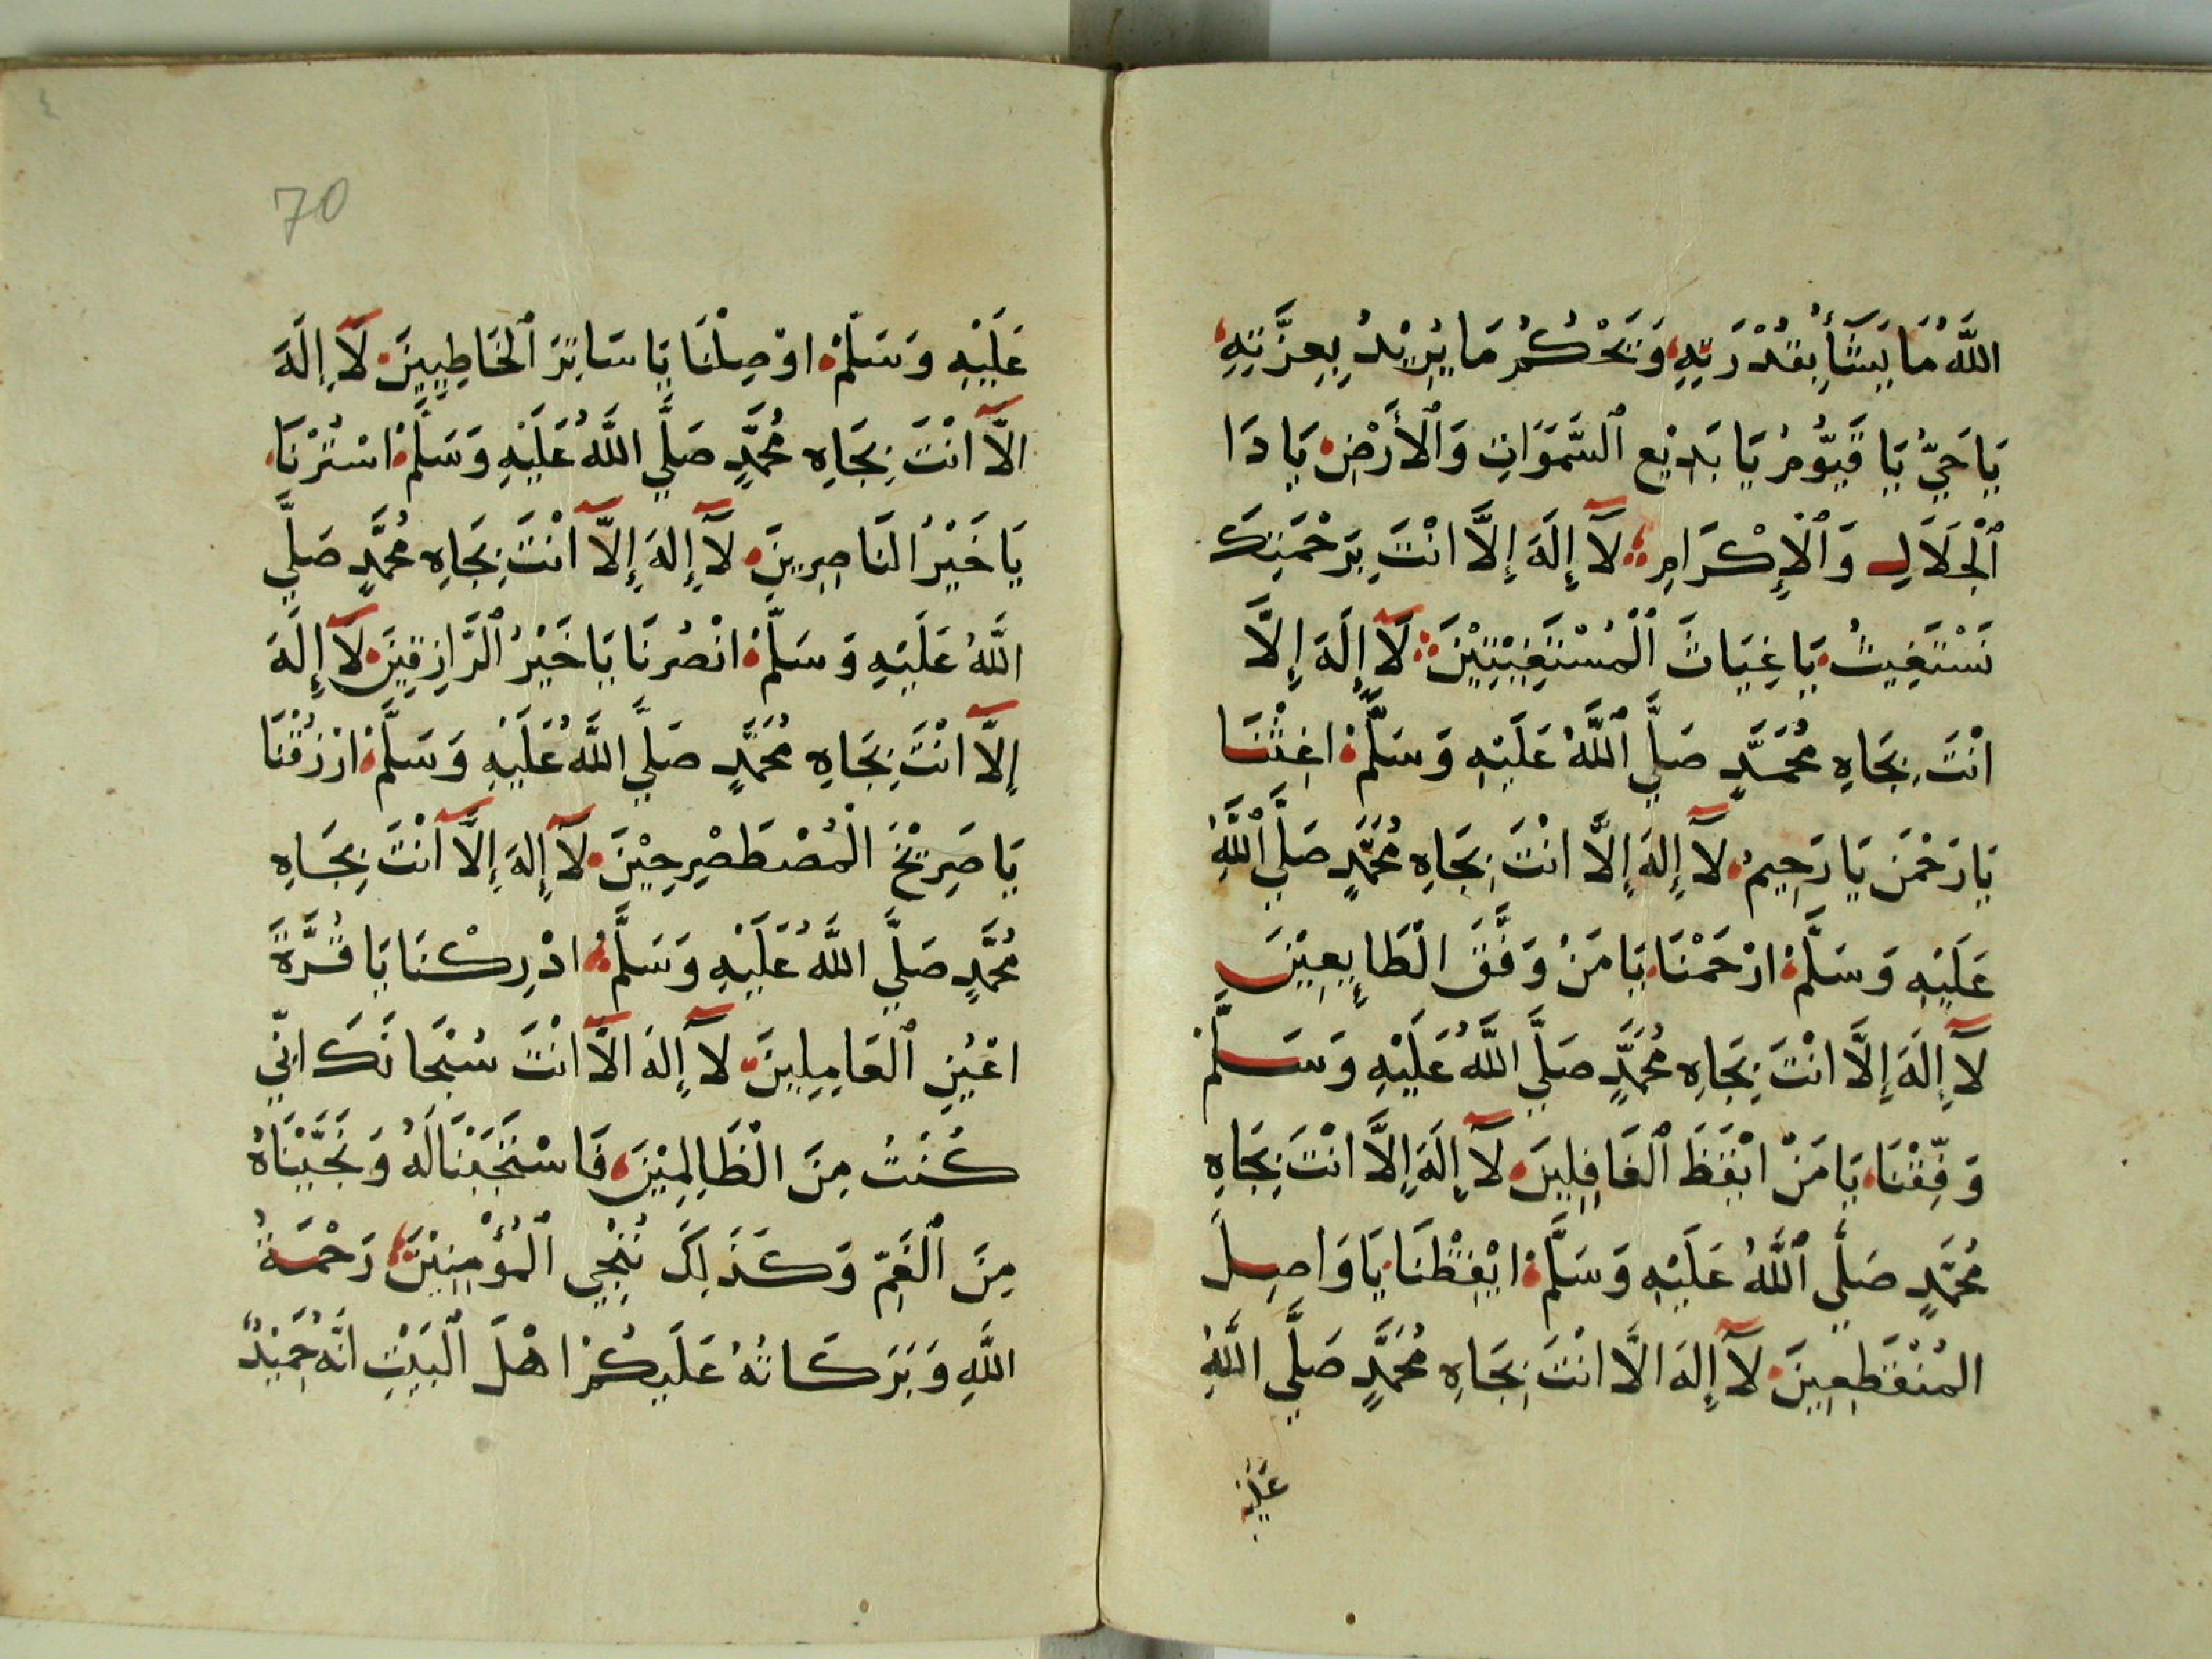 اللَّهُ مَا يَشَأُ بِقُدْرَتِهِ وَيَحْكُمُ مَا يُرِيْدُ بِعِزَّتِهِ
يَا حَيُّ يَا قَيُّومُ يَا بَدِيْعَ ٱلسَّمَوَاتِ وَٱلْأَرْضِ يَا ذَا
ٱلْجَلَالِ وَٱلْإِكْرَامِ لَآ إِلَهَ إِلَّا انْتَ بِرَحْمَتِكَ
نَسْتَغِيثُ يَا غِيَاثَ ٱلْمُسْتَغِيْثِيْنَ لَآ إِلَهَ إِلَّا
انْتَ بِجَاهِ مُحَمَّدٍ صَلَّي ٱللَّهُ عَلَيْهِ وَسَلَّمْ اغِثْنَا
يَا رَحْمَن يَا رَحِيمُ لَآ إِلهَ إِلَّا انْتَ بِجَاهِ مُحَمَّدٍ صَلَّي ٱللَّهُ
عَلَيْهِ وَسَلَّمْ ارْحَمْنَا يَا مَنْ وَفَّقَ الْطَايِعِيْنَ
لَآ إِلَهَ إِلَّا انْتَ بِجَاهِ مُحَمَّدٍ صَلَّي اللَّهُ عَلَيْهِ وَسَلَّمْ
وَفِّقْنَا يَا مَنْ ايْقَظَ ٱلغَافِلِينَ لَآ إِلَهَ إِلَّا انْتَ بِجَاهِ
مُحَمَّدٍ صَلَّي ٱللَّهُ عَلَيْهِ وَسَلَّمْ ايْقِظْنَا يَا وَاصِلَ
المُنْقَطِعِينَ لَآ إِلهَ الَّا انْتَ بِجَاهِ مُحَمَّدٍ صَلَّي اللَّهُ
عَلَيْهِ
70
عَلَيْهِ وَسَلَّمْ اوْصِلْنَا يَا سَاتِرَ ٱلْخَاطِيِينَ لَآ إِلَهَ
الَّآ انْتَ بِجَاهِ مُحَمَّدٍ صَلَّي اللَّهُ عَلَيْهِ وَسَلَّمْ اسْتُرْنَا
يَا خَيْرُ النَاصِرِينَ لَآ إِلهَ إِلَّآ أَنْتَ بِجَاهِ مُحَمَّدٍ صَلَّي
اللَّهُ عَلَيْهِ وَسَلَّمْ انْصُرْنَا يَا خَيْرُ ٱلْرَّازِقِينَ لَآ إِلَهَ
إِلَّآ انْتَ بِجَاهِ مُحَمَّدٍ صَلَّي اللَّهُ عَلَيْهِ وَسَلَّمْ ارْزُقْنَا
يَا صَرِيْخَ الْمُصْطَصْرِخِيْنَ لَآ إِلهَ إِلَّآ أَنْتَ بِجَاهِ
مُحَمَّدٍ صَلَّي اللَّهُ عَلَيْهِ وَسَلَّمْ ادْرِكْنَا يَا قُرَّةَ
اعْيُنِ ٱلعَامِلِينَ لَآ إِلهَ الَّآ انْتَ سُبْحَانَكَ انِّي
كُنْتُ مِنَ الْظَالِمِيْنَ فَاسْتَجَبْنَا لَهُ وَنَجَّيْنَاهُ
مِنَ ٱلْغَمِّ وَكَذَلِكَ نُنْجِي ٱلْمُؤْمِنِيْنَ رَحْمَةُ
اللَّهِ وَبَرَكَاتُهُ عَلَيكُمْ اهْلَ ٱلْبَيْتِ انَّهُ حَمِيْدٌ